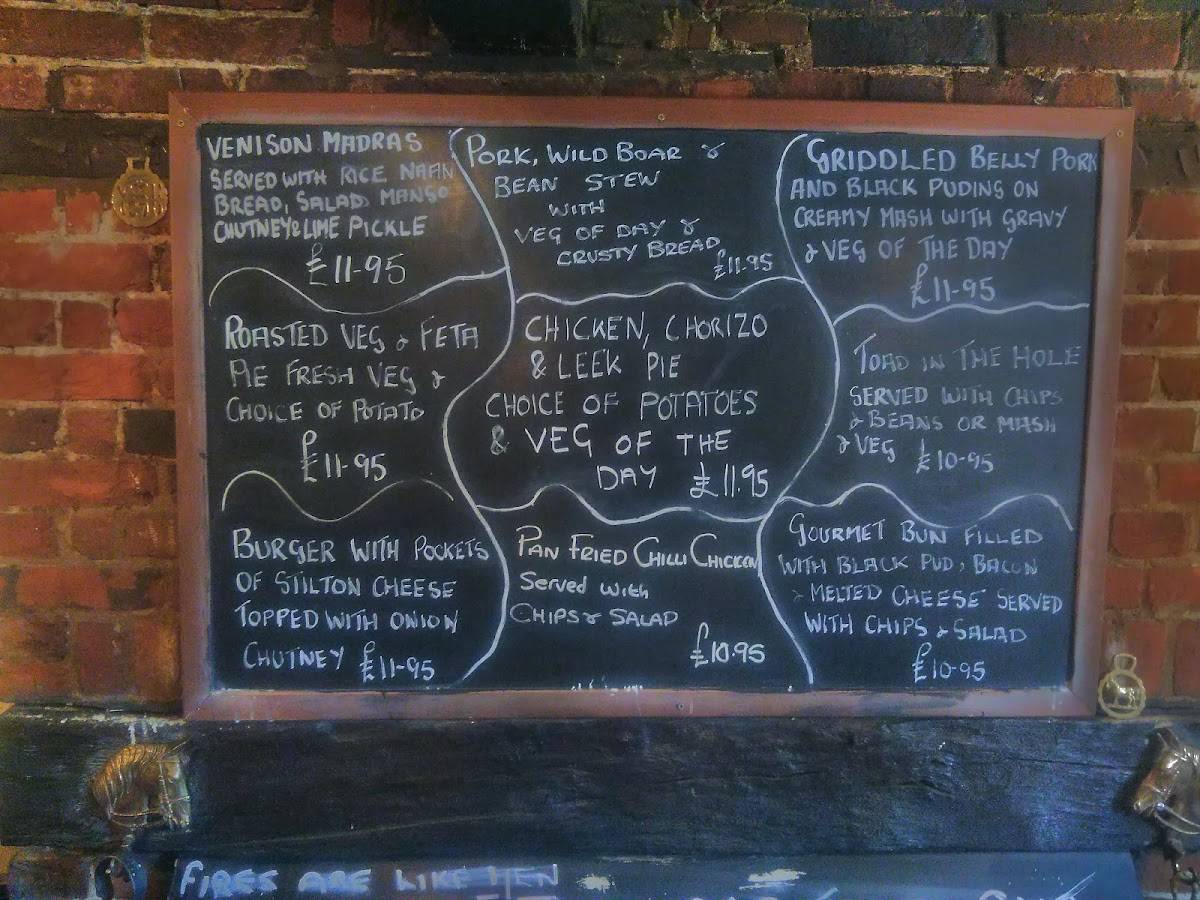 VENISON MADRAS
SERVED WITH RICE NAAN
BREAD, SALAD, MANGO
CHUTNEY & LIME PICKLE
£11-95
PORK, WILD BOAR &
BEAN STEW
WITH
VEG OF DAY &
CRUSTY BREAD
£11.95
GRIDDLED BELLY PORK
AND BLACK PUDING ON
CREAMY MASH WITH GRAVY
& VEG OF THE DAY
£11-95
ROASTED VEG & FETA
PIE FRESH VEG &
CHOICE OF POTATO
£11-95
CHICKEN, CHORIZO
& LEEK PIE
CHOICE OF POTATOES
& VEG OF THE
DAY £11.95
TOAD IN THE HOLE
SERVED WITH CHIPS
& BEANS OR MASH
& VEG £10-95
BURGER WITH POCKETS
OF STILTON CHEESE
TOPPED WITH ONION
CHUTNEY £11-95
PAN FRIED CHILLI CHICKEN
Served with
CHIPS & SALAD
£10.95
GOURMET BUN FILLED
WITH BLACK PUD, BACON
& MELTED CHEESE SERVED
WITH CHIPS & SALAD
£10-95
FIRES ARE LIKE